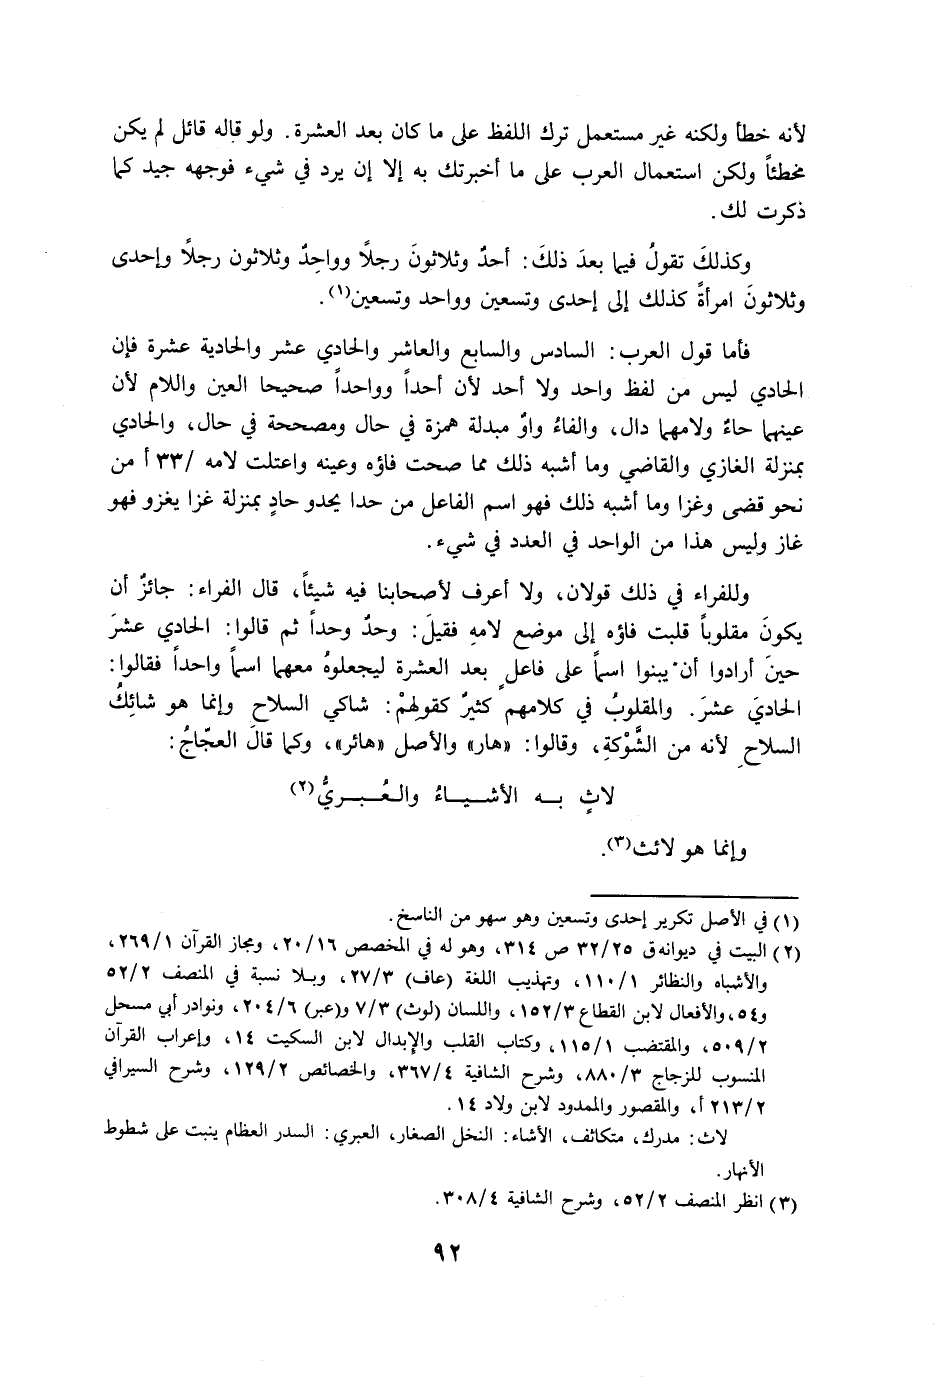 لأنه خطأ ولكنه غير مستعمل ترك اللفظ على ما كان بعد العشرة. ولو قاله قائل لم يكن
مخطئاً ولكن استعمال العرب على ما أخبرتك به إلا إن يرد في شيء فوجهه جيد كما
ذكرت لك.
وكذلكَ تقولُ فيما بعدَ ذلكَ: أحدٌ وثلاثونَ رجلاً وواحِدٌ وثلاثون رجلاً وإحدى
وثلاثونَ امرأةً كذلك إلى إحدى وتسعين وواحد وتسعين(١).
فأما قول العرب: السادس والسابع والعاشر والحادي عشر والحادية عشرة فإن
الحادي ليس من لفظ واحد ولا أحد لأن أحداً وواحداً صحيحا العين واللام لأن
عينهما حاءٌ ولامهما دال، والفاءُ واوٌ مبدلة همزة في حال ومصححة في حال، والحادي
بمنزلة الغازي والقاضي وما أشبه ذلك مما صحت فاؤه وعينه واعتلت لامه /٣٣ أ من
نحو قضى وغزا وما أشبه ذلك فهو اسم الفاعل من حدا يحدو حادٍ بمنزلة غزا يغزو فهو
غاز وليس هذا من الواحد في العدد في شيء.
وللفراء في ذلك قولان، ولا أعرف لأصحابنا فيه شيئاً، قال الفراء: جائزٌ أن
يكونَ مقلوباً قلبت فاؤه إلى موضع لامهِ فقيلَ: وحدٌ وحداً ثم قالوا: الحادي عشرَ
حينَ أرادوا أن يبنوا اسماً على فاعلٍ بعد العشرة ليجعلوهُ معهما اسماً واحداً فقالوا:
الحاديَ عشرَ. والمقلوبُ في كلامهم كثيرٌ كقولهِمْ: شاكي السلاحِ وإنما هو شائِكُ
السلاحِ لأنه من الشَّوْكةِ، وقالوا: «هار» والأصل «هائر»، وكما قالَ العجّاجُ:
لاثٍ بــه الأشــيــاءُ والـعُـبـريُّ(٢)
وإنما هو لائث(٣).
(١) في الأصل تكرير إحدى وتسعين وهو سهو من الناسخ.
(٢) البيت في ديوانه ق ٣٢/٢٥ ص ٣١٤، وهو له في المخصص ٢٠/١٦، ومجاز القرآن ٢٦٩/١،
والأشباه والنظائر ١١٠/١، وتهذيب اللغة (عاف) ٢٧/٣، وبلا نسبة في المنصف ٥٢/٢
و٥٤، والأفعال لابن القطاع ١٥٢/٣، واللسان (لوث) ٧/٣ و(عبر) ٢٠٤/٦، ونوادر أبي مسحل
٥٠٩/٢، والمقتضب ١١٥/١، وكتاب القلب والإبدال لابن السكيت ١٤، وإعراب القرآن
المنسوب للزجاج ٨٨٠/٣، وشرح الشافية ٣٦٧/٤، والخصائص ١٢٩/٢، وشرح السيرافي
٢١٣/٢ أ، والمقصور والممدود لابن ولاد ١٤.
لاث: مدرك، متكاثف، الأشاء: النخل الصغار، العبري: السدر العظام ينبت على شطوط
الأنهار.
(٣) انظر المنصف ٥٢/٢، وشرح الشافية ٣٠٨/٤.
٩٢